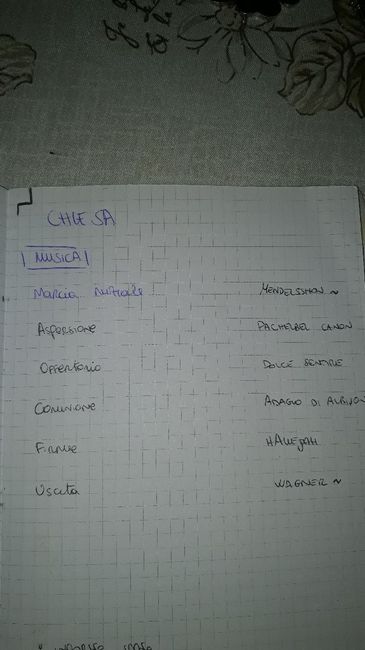 CHIESA
MUSICA
Marcia nuziale MENDELSSHON ~
Aspersione PACHELBEL CANON
Offertorio DOLCE SENTIRE
Comunione ADAGIO DI ALBINON
Firme HALLEJAH
Uscita WAGNER ~